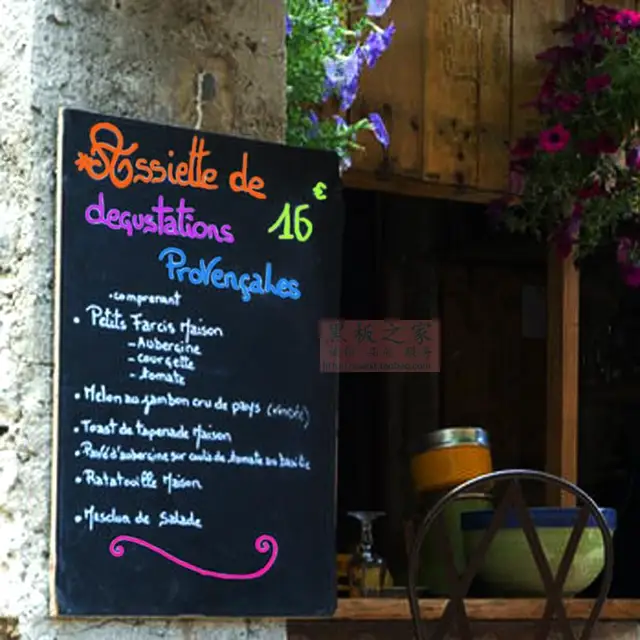 *Assiette de
degustations 16 €
Provençales
• comprenant
• Petits Farcis Maison
- Aubergine
- courgette
- tomate
• Melon au jambon cru de pays
• Toast de tapenade Maison
• d'aubergine sur coulis de tomate au basilic
• Ratatouille Maison
• Mesclun de Salade
黑板之家